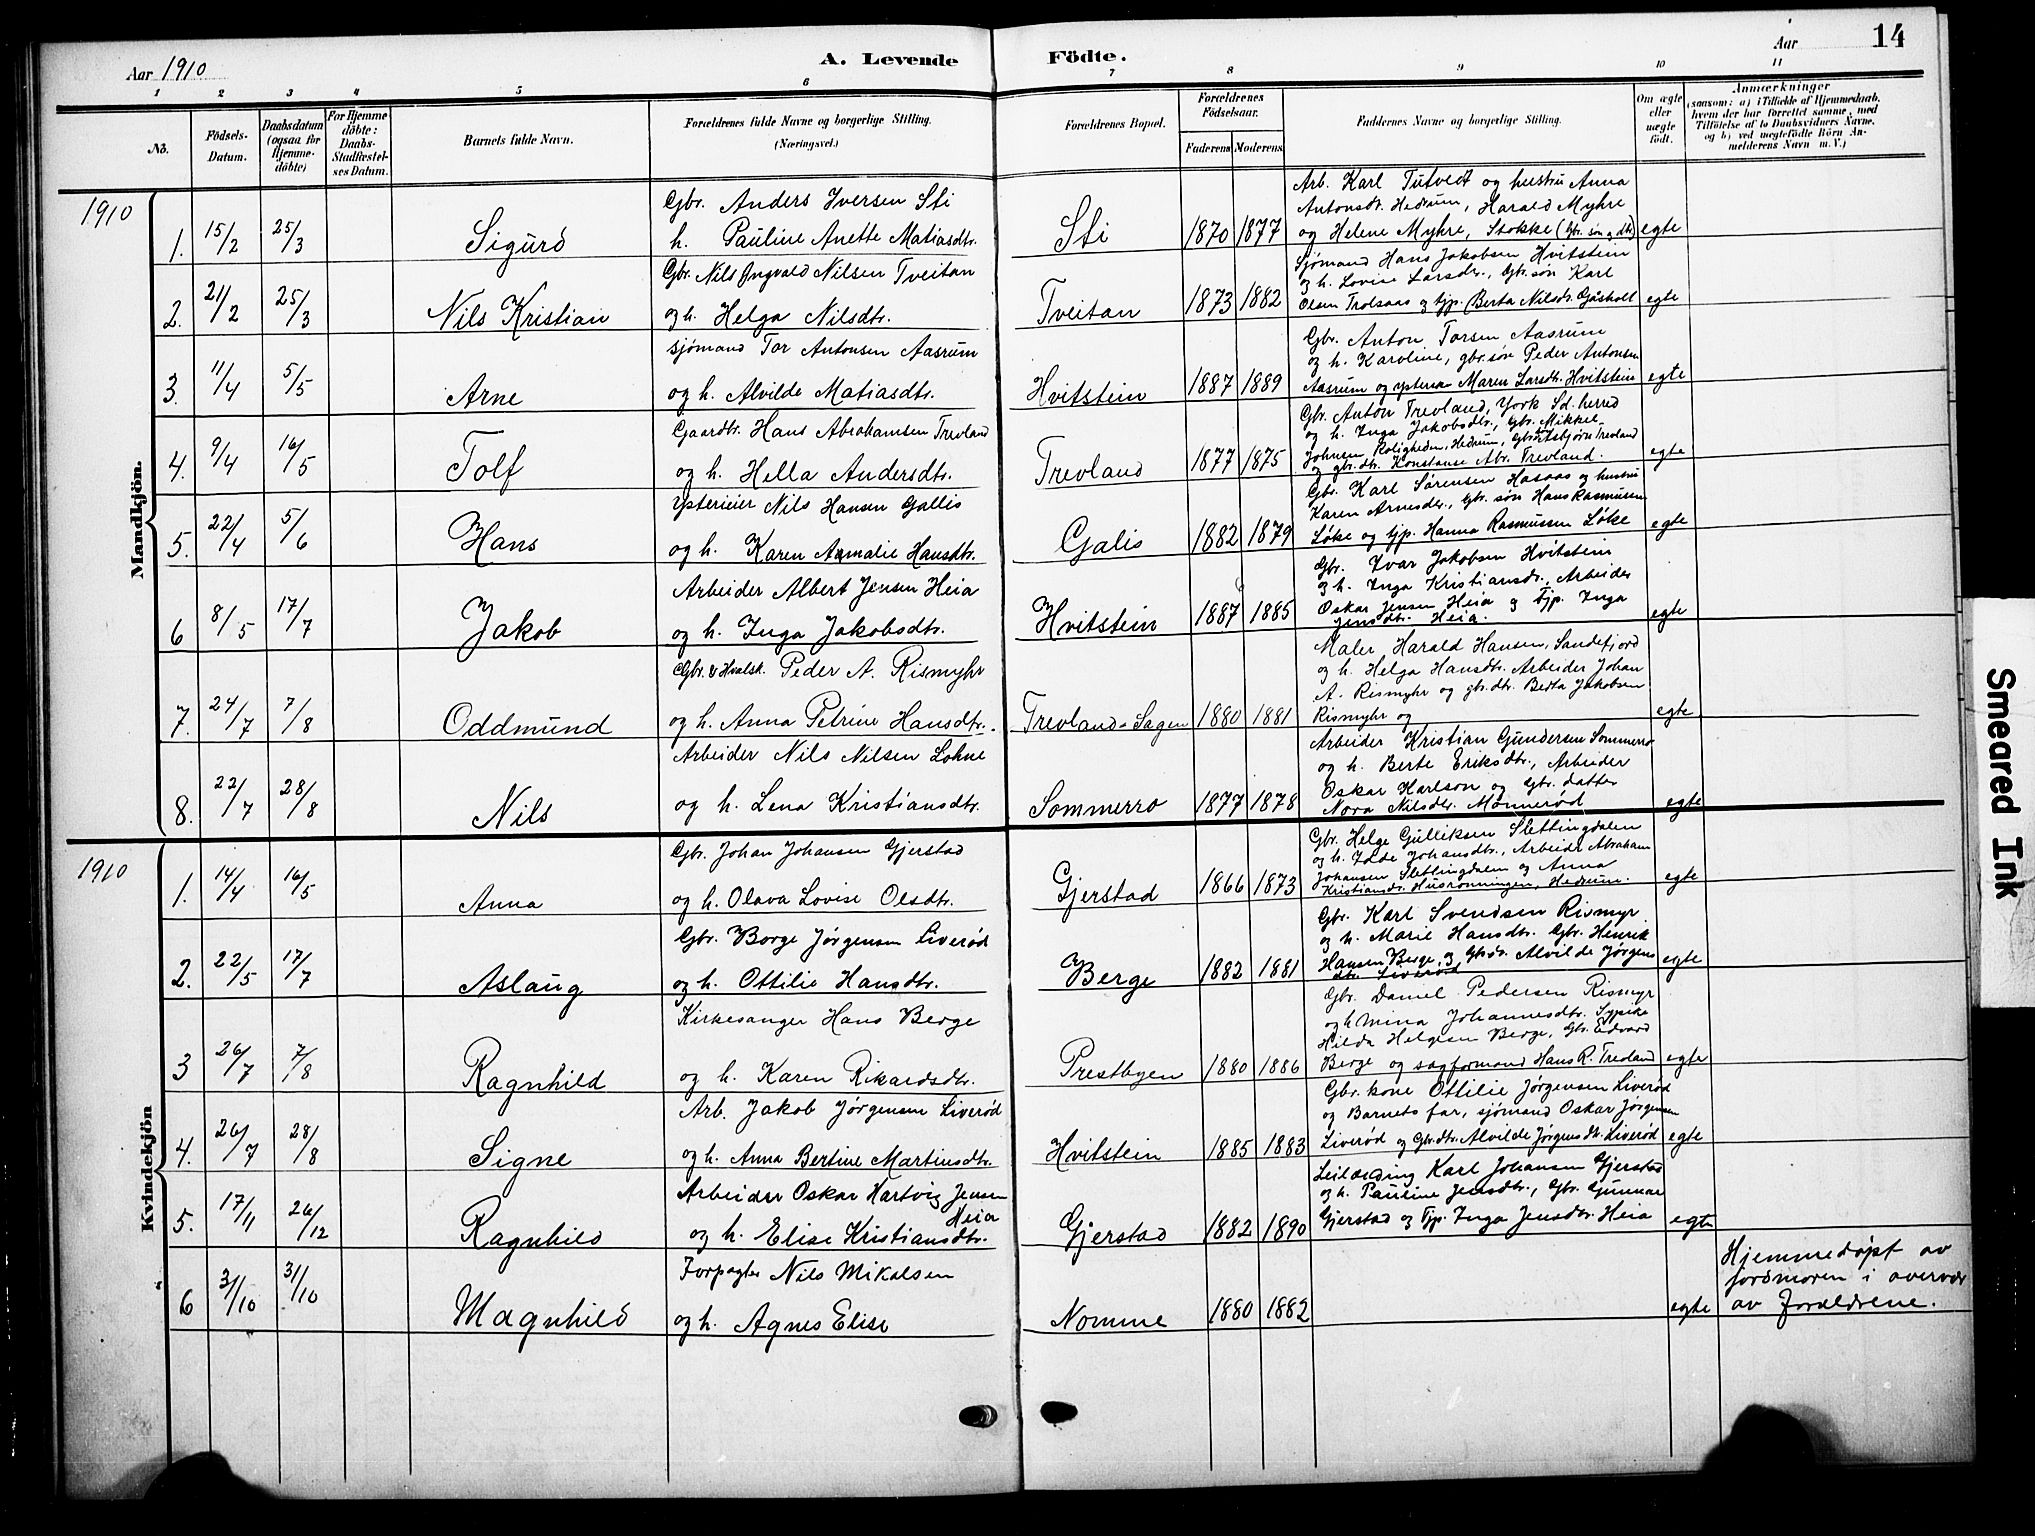 Aar 1910
A. Levende
Födte.
Aar
14
1 2 3 4 5 6 7 8 9 10 11
No.
Födsels-
Datum.
Daabsdatum
(ogsaa for
Hjemme-
døbte)
For Hjemme
döbte:
Daabs-
Stadfæstel-
ses Datum.
Barnets fulde Navn.
Forældrenes fulde Navne og borgerlige Stilling.
(Næringsvei.)
Forældrenes Bopæl.
Forældrenes
Födselsaar.
Faderens Moderens
Faddernes Navne og borgerlige Stilling.
Om ægte
eller
uægte
födt.
Anmærkninger
(saasom: a) i Tilfælde af Hjemmedaab,
hvem der har forrettet samme, med
Tilföielse af to Daabsvidners Navne,
og b) ved uegtefödte Börn An-
melderens Navn m. V.)
Mandkjön.
1910
1. 15/2 25/3 Sigurd
Gbr. Anders Iversen Sti
h. Pauline Anette Matiasdtr.
Sti 1870 1877
Arb. Karl Tutvedt og hustru Anna
Antonsdr. Hedrum, Harald Myhre
og Helene Myhre, Stokke (Gbr. søn g dtr)
egte
2. 21/2 25/3 Nils Kristian
Gbr. Nils Ingvald Nilsen Tveitan
og h. Helga Nilsdtr.
Tveitan 1873 1882
Sjømand Hans Jakobsen Hvitstein
og h. Lovise Larsdr., Gbr. søn Karl
Olsen Trolsaas og tjp. Berta Nilsdtr. Gåsholt
egte
3. 11/4 5/5 Arne
sjømand Tor Antonsen Aasrum
og h. Alvilde Matiasdtr.
Hvitstein 1887 1889
Gbr. Anton Torsen Aasrum
og h. Karoline, gbr. søn Peder Antonsen
Aasrum og Maren Larsdtr. Hvitstein
egte
4. 9/4 16/5 Tolf
Gaardbr. Hans Abrahamsen Trevland
og h. Hella Andersdtr.
Trevland 1877 1875
Gbr. Anton Trevland, York Sd. herred
og h. Inga Jakobsdtr., Gbr. Mikkel
Johnsen, Roligheden, Hedrum, Gbr. Asbjørn Trevland
og gbr. dtr. Konstanse Abr. Trevland.
egte
5. 22/4 5/6 Hans
Ysterieier Nils Hansen Gallis
og h. Karen Amalie Hansdtr.
Galis 1882 1879
Gbr. Karl Sørensen Hasaas og hustru
Karen Arnesdr., Gbr. søn Hans Rasmussen
Løke og tjp. Hanna Rasmussen Løke
egte
6 8/5 17/7 Jakob
Arbeider Albert Jensen Heia
og h. Inga Jakobsdtr.
Hvitstein 1887 1885
Gbr. Ivar Jakobsen Hvitstein
og h. Inga Kristiansdr., Arbeider
Oskar Jensen Heia g Tjp. Inga
Jensdtr. Heia.
egte
7. 24/7 7/8 Oddmund
Gbr. & Hvalsk. Peder A. Rismyhr
og h. Anna Petrine Hansdtr.
Trevland-Sagen 1880 1881
Maler Harald Hansen, Sandefjord
og h. Helga Hansdtr. Arbeider Johan
A. Rismyhr og gbr. dtr. Berta Jakobsen
Rismyhr og
egte
8. 22/7 28/8 Nils
Arbeider Nils Nilsen Lohne
og h. Lena Kristiansdtr.
Sommerro 1877 1878
Arbeider Kristian Gundersen Sommerro
og h. Berte Eriksdtr., Arbeider
Oskar Karlson og Gbr. datter
Nora Nilsdtr. Mønnerød
egte
Kvindekjön
1910
1. 14/4 16/5 Anna
Gbr. Johan Johansen Gjerstad
og h. Olava Lovise Olsdtr.
Gjerstad 1866 1873
Gbr. Helge Gulliksen Slettingdalen
og h. Johansdtr., Arbeider Abraham
Johansen Slettingdalen og Anna
Kristiansdr. Husrønningen, Hedrum.
egte
2. 22/5 17/7 Aslaug
Gbr. Borge Jørgensen Liverød
og h. Ottilie Hansdtr.
Berge 1882 1881
Gbr. Karl Svendsen Rismyr
og h. Marie Hansdtr. Gbr. Henrik
Hansen Berge, g Gbr. dr. Alvilde Jørgens
dtr. Liverød
egte
3 26/7 7/8 Ragnhild
Kirkesanger Hans Berge
og h. Karen Rikardsdtr.
Prestbyen 1880 1886
Gbr. Daniel Pedersen Rismyr
og h Mina Johannesdtr. Sypike
Hilda Helgesen Berge, Gbr. Edvard
Berge og sagformand Hans R. Trevland
egte
4. 26/7 28/8 Signe
Arb. Jakob Jørgensen Liverød
og h. Anna Bertine Martinsdtr.
Hvitstein 1885 1883
Gbr. kone Ottilie Jørgensen Liverød
og Barnets far, sjømand Oskar Jørgensen
Liverød og Gbr. dtr. Alvilde Jørgensdtr. Liverød
egte
5. 17/11 26/12 Ragnhild
Arbeider Oskar Hartvig Jensen
Heia
og h. Elise Kristiansdtr.
Gjerstad 1882 1890
Leilænding Karl Johansen Gjerstad
og h. Pauline Jensdtr., Gbr. Gunnar
Gjerstad og Tjp. Inga Jensdtr. Heia
egte
6 3/10 31/10 Magnhild
Forpagter Nils Mikalsen
og h. Agnes Elise
Nomme 1880 1882
egte
Hjemmedøpt av
jordmoren i overvær
av forældrene.
Smeared Ink